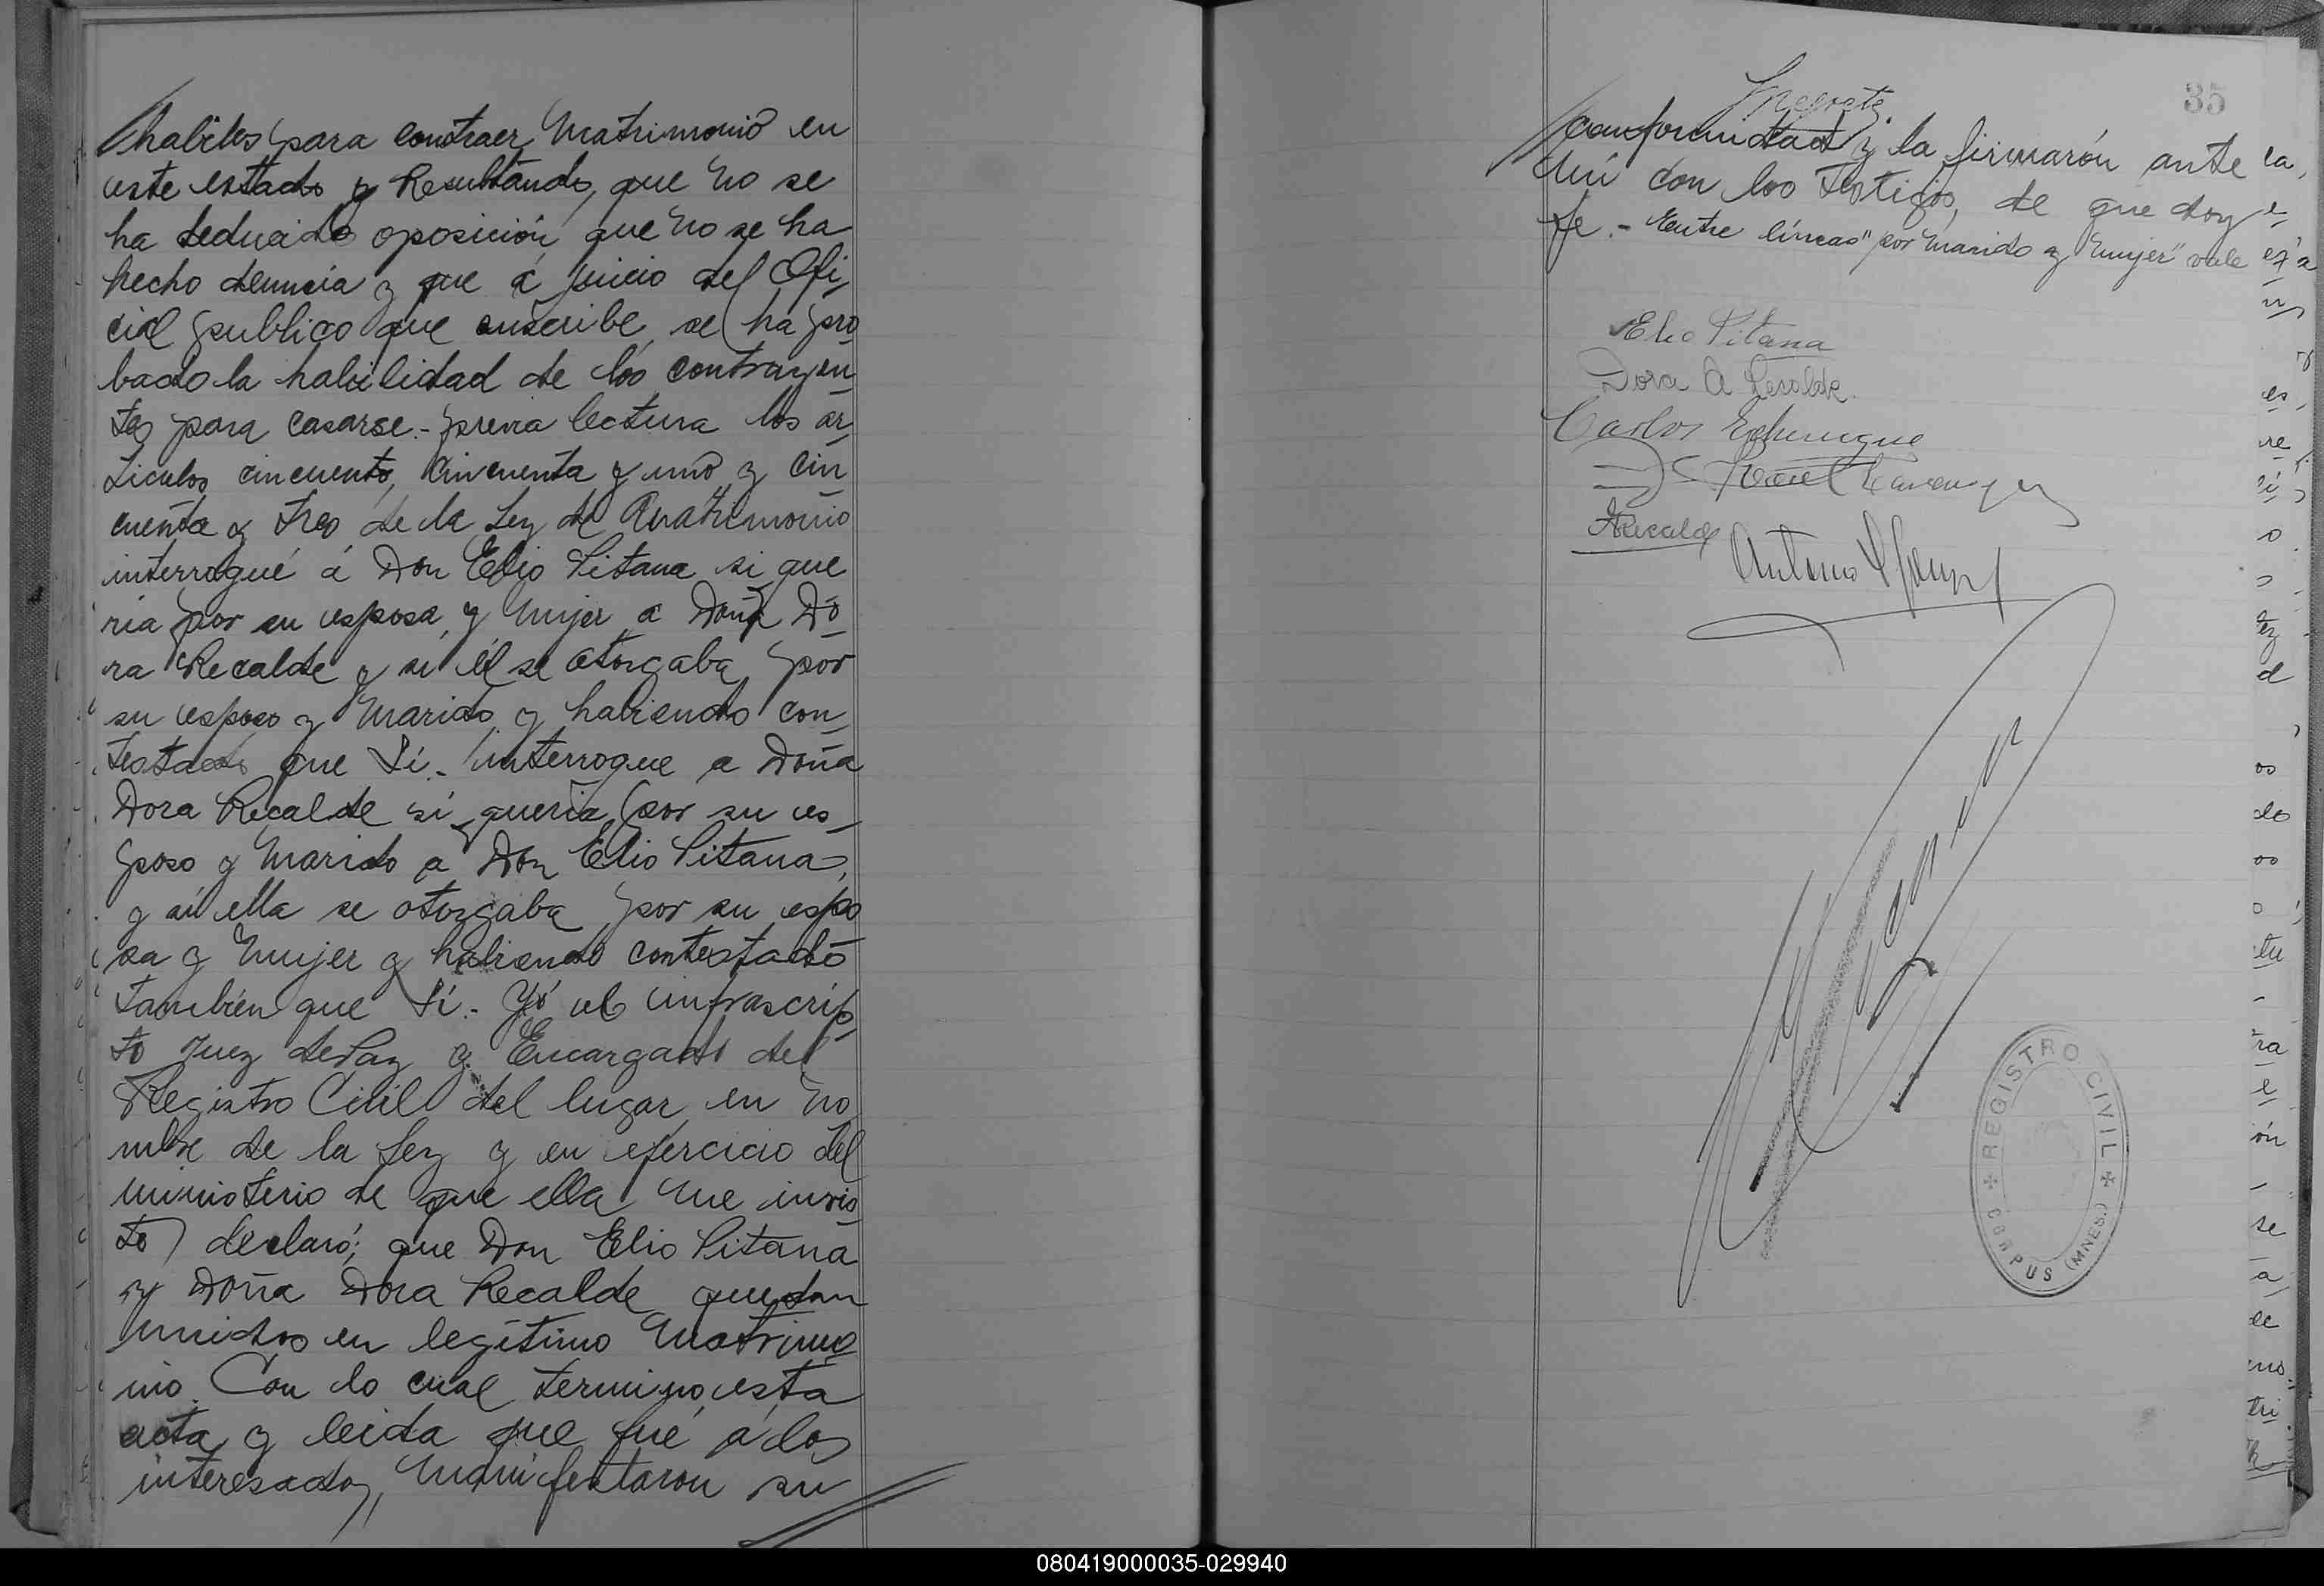 habiles para contraer Matrimonio en
este estado y Resultando, que no se
ha deducido oposición, que no se ha
hecho denuncia y que á juicio del Ofi-
cial publico que suscribe, se ha pro-
bado la habilidad de los contrayen-
tes para casarse.- previa lectura los ar-
ticulos cincuenta, cincuenta y uno y cin-
cuenta y tres de la Ley de Matrimonio
interrogué á Don Elio Pitana si que
ria por su esposa y Mujer a Doña Do-
ra Recalde y si él se otorgaba por
su esposo y Marido y habiendo con-
testado que Sí.- interrogue a Doña
Dora Recalde si queria por su es-
poso y Marido a Don Elio Pitana,
y si ella se otorgaba por su espo
sa y Mujer y habiendo contestado
también que Sí.- Yo el infrascrip-
to Juez de Paz y Encargado del
Registro Civil del lugar en no
mbre de la Ley y en ejercicio del
ministerio de que ella me invis-
te declaró; que Don Elio Pitana
y Doña Dora Recalde quedan
unidos en legítimo Matrimo
nio. Con lo cual termino esta
acta y leida que fué á los
interesados, Manifestaron su
35
conformidad y la firmarón ante
Mí con los Testigos, de que doy
fe.- Entre líneas "por Marido y Mujer" vale
Elio Pitana
Dora A Recalde.
Carlos
Recalde
Antonio
REGISTRO CIVIL
CORPUS (MNES.)
080419000035-029940